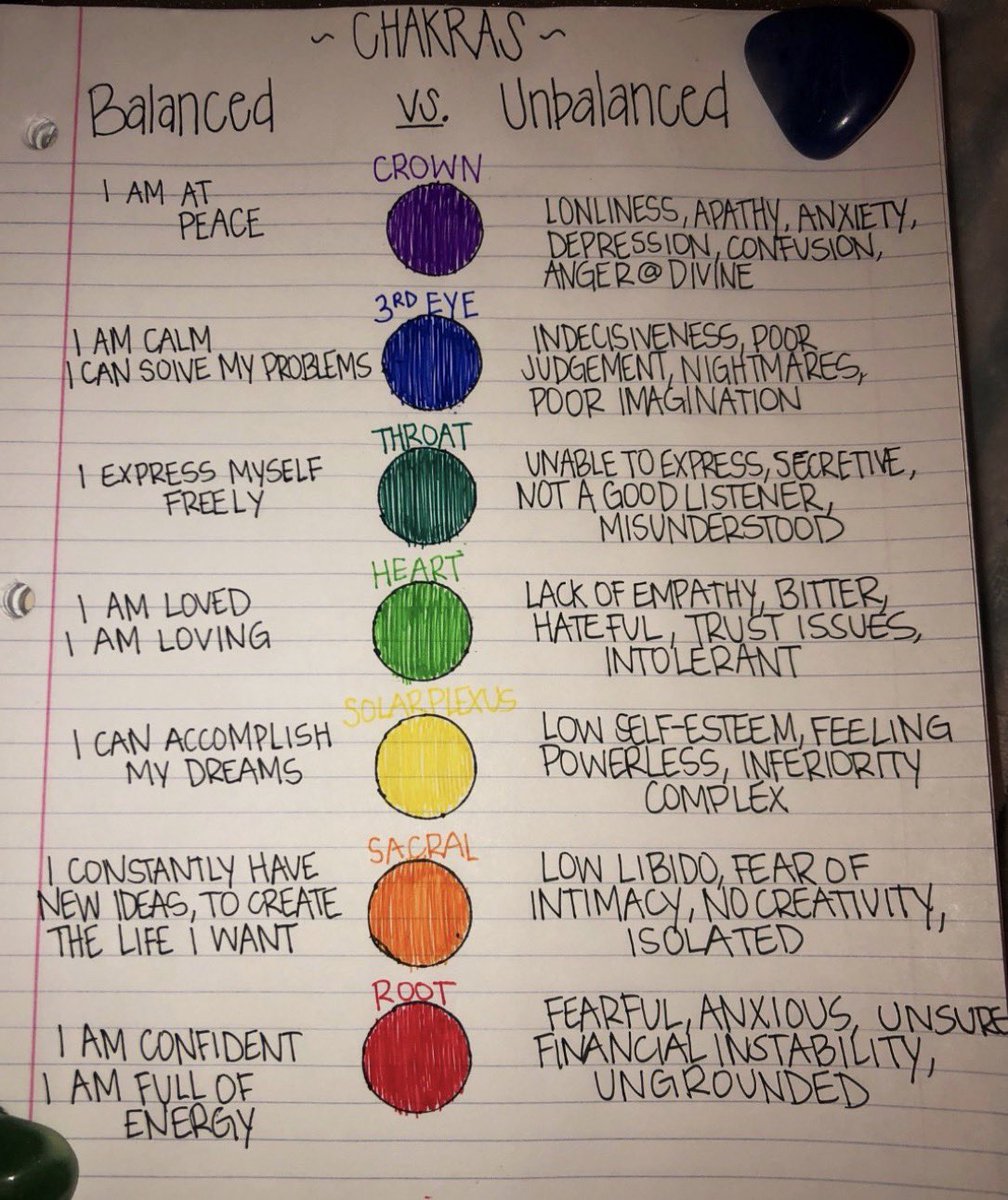 ~ CHAKRAS ~
Balanced vs. Unbalanced
CROWN
I AM AT
PEACE
LONLINESS, APATHY, ANXIETY,
DEPRESSION, CONFUSION,
ANGER @ DIVINE
3RD EYE
I AM CALM
I CAN SOlVE MY PROBLEMS
INDECISIVENESS, POOR
JUDGEMENT, NIGHTMARES,
POOR IMAGINATION
THROAT
I EXPRESS MYSELF
FREELY
UNABLE TO EXPRESS, SECRETIVE,
NOT A GOOD LISTENER,
MISUNDERSTOOD
HEART
I AM LOVED
I AM LOVING
LACK OF EMPATHY, BITTER,
HATEFUL, TRUST ISSUES,
INTOLERANT
SOLAR PLEXUS
I CAN ACCOMPLISH
MY DREAMS
LOW SELF-ESTEEM, FEELING
POWERLESS, INFERIORITY
COMPLEX
SACRAL
I CONSTANTLY HAVE
NEW IDEAS, TO CREATE
THE LIFE i WANT
LOW LIBIDO, FEAR OF
INTIMACY, NO CREATIVITY,
ISOLATED
ROOT
I AM CONFIDENT
I AM FULL OF
ENERGY
FEARFUL, ANXIOUS, UNSURE
FINANCIAL INSTABILITY,
UNGROUNDED